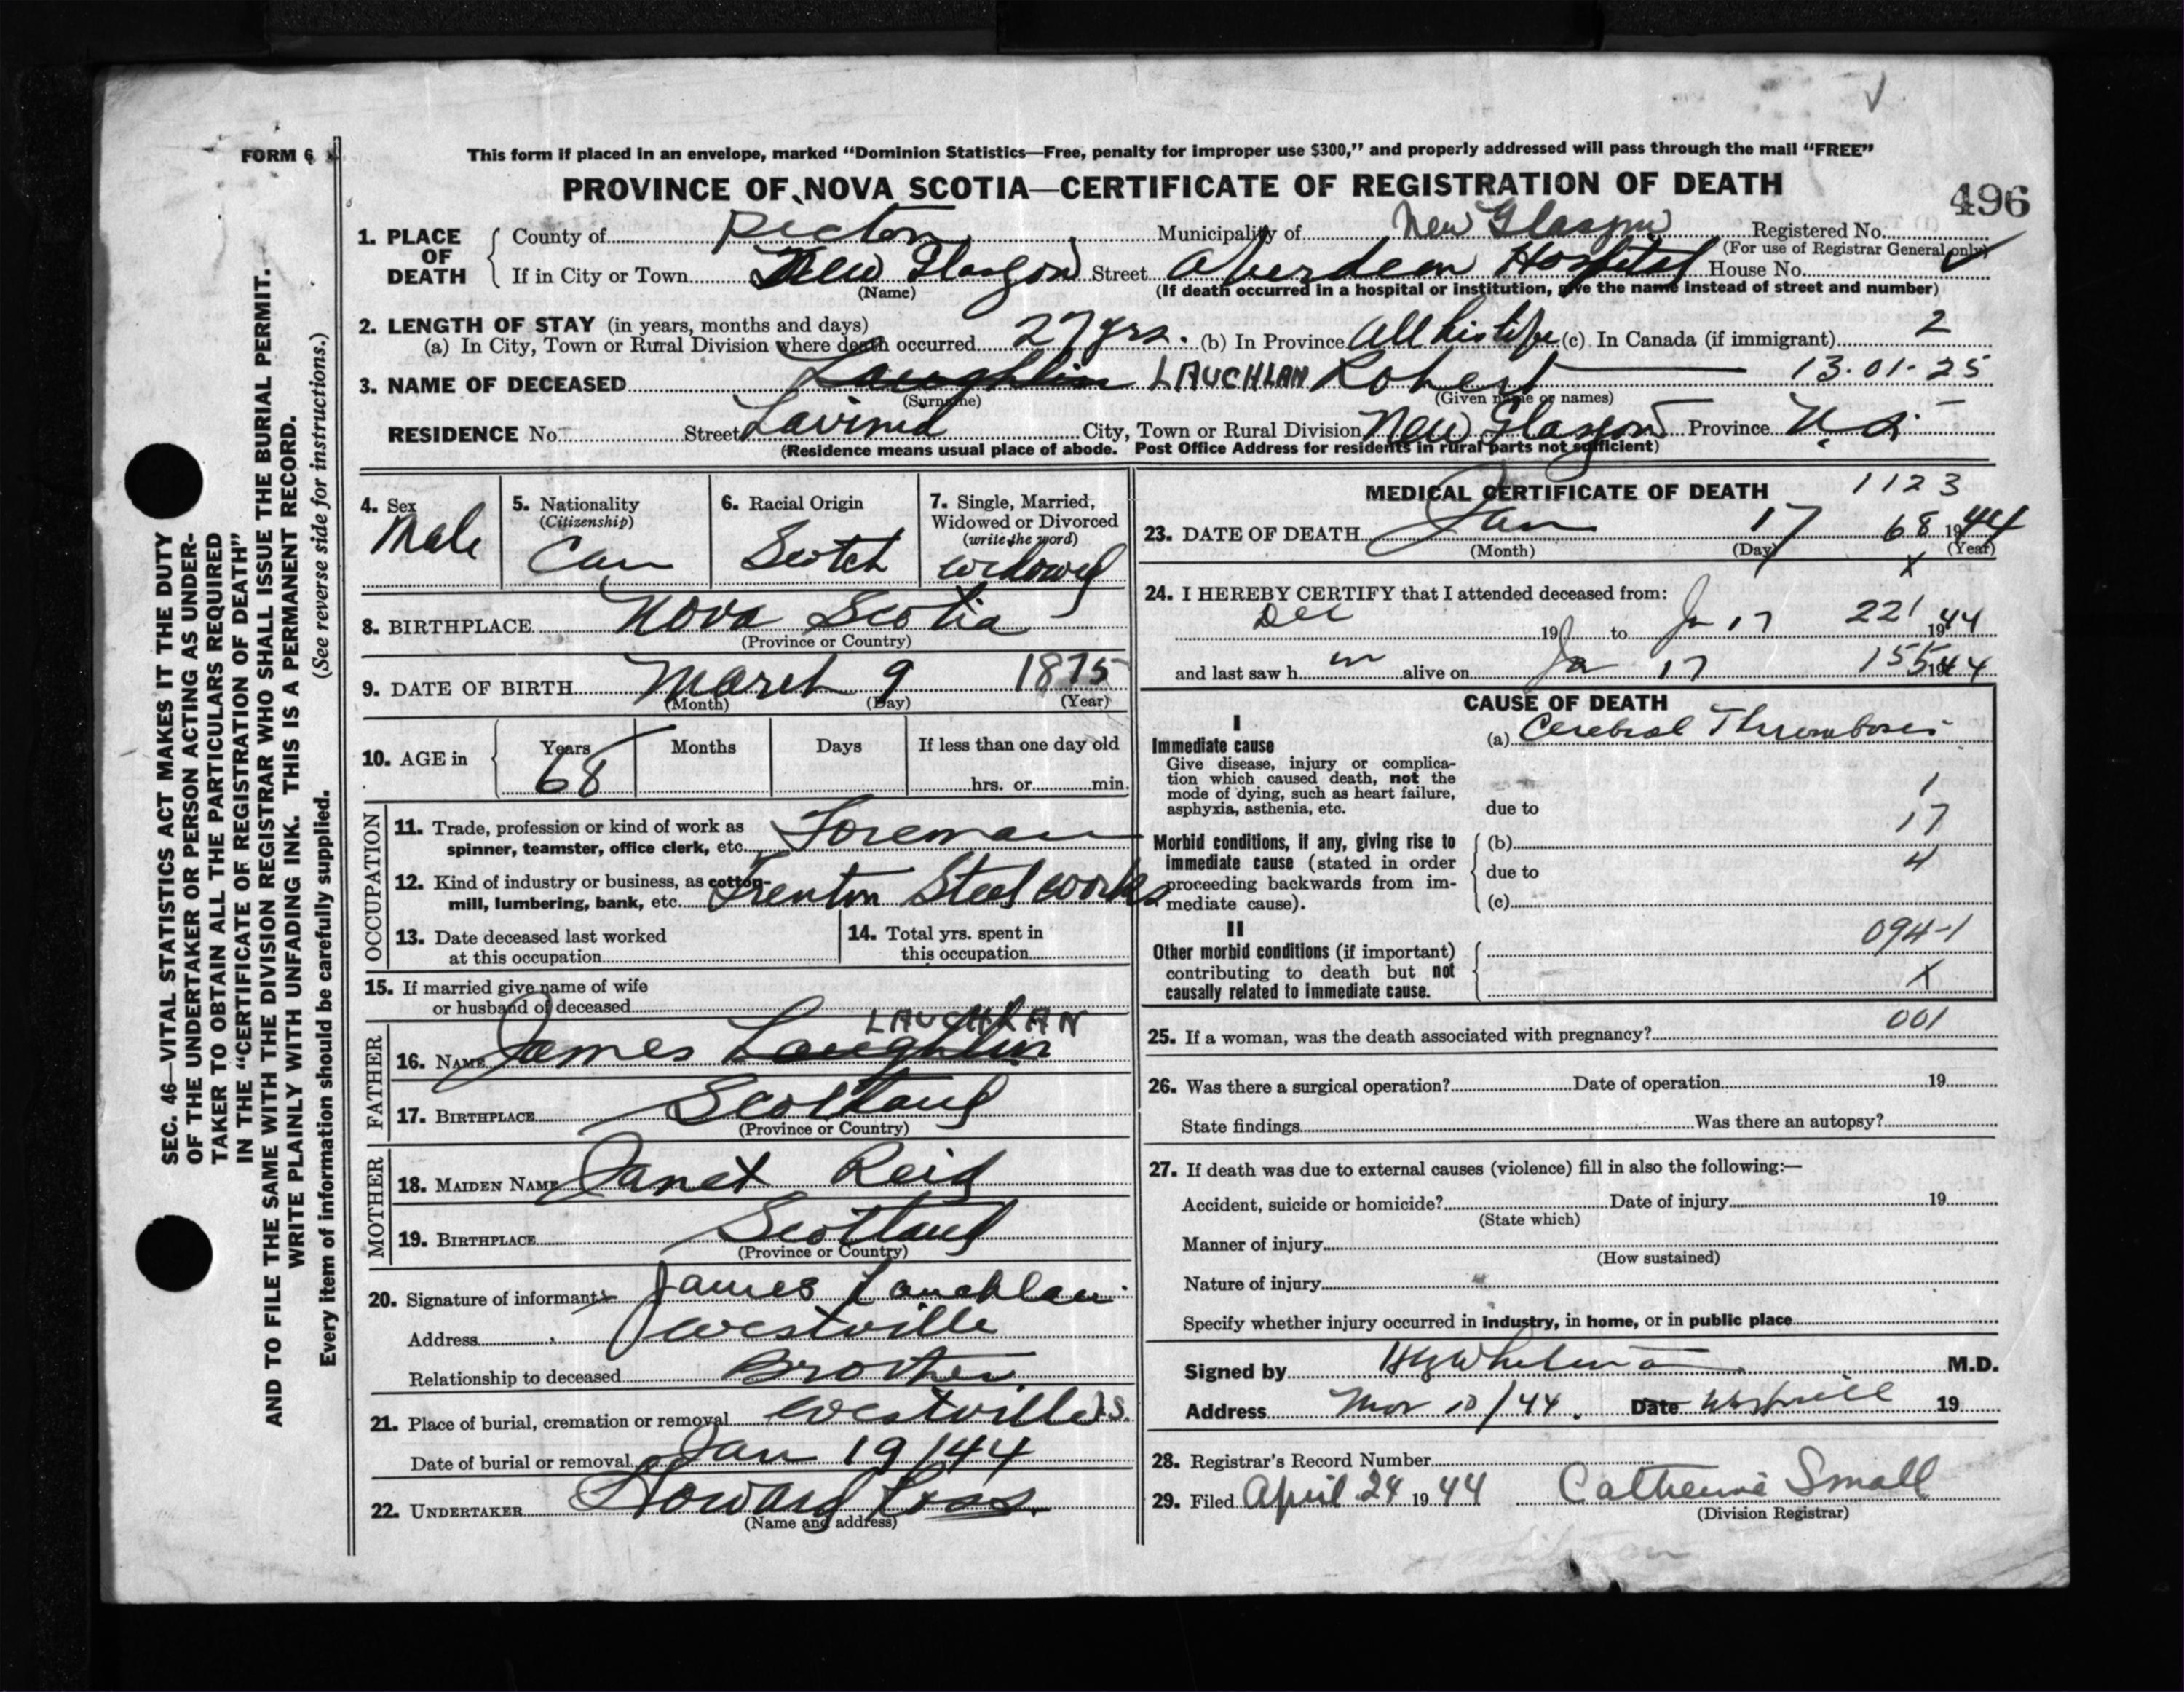 FORM 6
This form if placed in an envelope, marked “Dominion Statistics—Free, penalty for improper use $300,” and properly addressed will pass through the mail “FREE”
PROVINCE OF NOVA SCOTIA—CERTIFICATE OF REGISTRATION OF DEATH
496
1. PLACE OF DEATH County of Pictou Municipality of New Glasgow Registered No.
(For use of Registrar General only)
If in City or Town New Glasgow Street Aberdeen Hospital House No.
(Name) (If death occurred in a hospital or institution, give the name instead of street and number)
2. LENGTH OF STAY (in years, months and days)
(a) In City, Town or Rural Division where death occurred 27 yrs. (b) In Province All his life (c) In Canada (if immigrant) 2
3. NAME OF DECEASED Laughlin LAUCHLAN Robert 13.01.25
(Surname) (Given name or names)
RESIDENCE No. Street City, Town or Rural Division New Glasgow Province N.S.
(Residence means usual place of abode. Post Office Address for residents in rural parts not sufficient)
4. Sex Male
5. Nationality (Citizenship) Can
6. Racial Origin Scotch
7. Single, Married, Widowed or Divorced (write the word) Widowed
8. BIRTHPLACE Nova Scotia
(Province or Country)
9. DATE OF BIRTH March 9 1875
(Month) (Day) (Year)
10. AGE in Years Months Days If less than one day old
68 hrs. or min.
OCCUPATION
11. Trade, profession or kind of work as spinner, teamster, office clerk, etc. Foreman
12. Kind of industry or business, as cotton-mill, lumbering, bank, etc. Trenton Steel works
13. Date deceased last worked at this occupation
14. Total yrs. spent in this occupation
15. If married give name of wife or husband of deceased
FATHER
LAUCHLAN
16. NAME James Laughlin
17. BIRTHPLACE Scotland
(Province or Country)
MOTHER
18. MAIDEN NAME Janet Reid
19. BIRTHPLACE Scotland
(Province or Country)
20. Signature of informant James Lauchlan
Address Westville
Relationship to deceased Brother
21. Place of burial, cremation or removal Westville N.S.
Date of burial or removal Jan 19/44
22. UNDERTAKER Howard Ross
(Name and address)
MEDICAL CERTIFICATE OF DEATH 1123
23. DATE OF DEATH Jan 17 68 1944
(Month) (Day) (Year)
x
24. I HEREBY CERTIFY that I attended deceased from:
Dec 19 to Ja 17 221 1944
and last saw h im alive on Ja 17 155 1944
CAUSE OF DEATH
I
Immediate cause (a) Cerebral Thrombosis
Give disease, injury or complication which caused death, not the mode of dying, such as heart failure, asphyxia, asthenia, etc.
1
due to
17
Morbid conditions, if any, giving rise to immediate cause (stated in order proceeding backwards from immediate cause).
(b)
4
due to
(c)
II
094-1
Other morbid conditions (if important) contributing to death but not causally related to immediate cause.
x
001
25. If a woman, was the death associated with pregnancy?
26. Was there a surgical operation? Date of operation 19
State findings Was there an autopsy?
27. If death was due to external causes (violence) fill in also the following:—
Accident, suicide or homicide? Date of injury 19
(State which)
Manner of injury
(How sustained)
Nature of injury
Specify whether injury occurred in industry, in home, or in public place
Signed by Whitman M.D.
Address Mar 10/44. Date Westville 19
28. Registrar's Record Number
29. Filed April 24 1944 Catherine Small
(Division Registrar)
SEC. 46—VITAL STATISTICS ACT MAKES IT THE DUTY
OF THE UNDERTAKER OR PERSON ACTING AS UNDER-
TAKER TO OBTAIN ALL THE PARTICULARS REQUIRED
IN THE “CERTIFICATE OF REGISTRATION OF DEATH”
AND TO FILE THE SAME WITH THE DIVISION REGISTRAR WHO SHALL ISSUE THE BURIAL PERMIT.
WRITE PLAINLY WITH UNFADING INK. THIS IS A PERMANENT RECORD.
Every item of information should be carefully supplied. (See reverse side for instructions.)